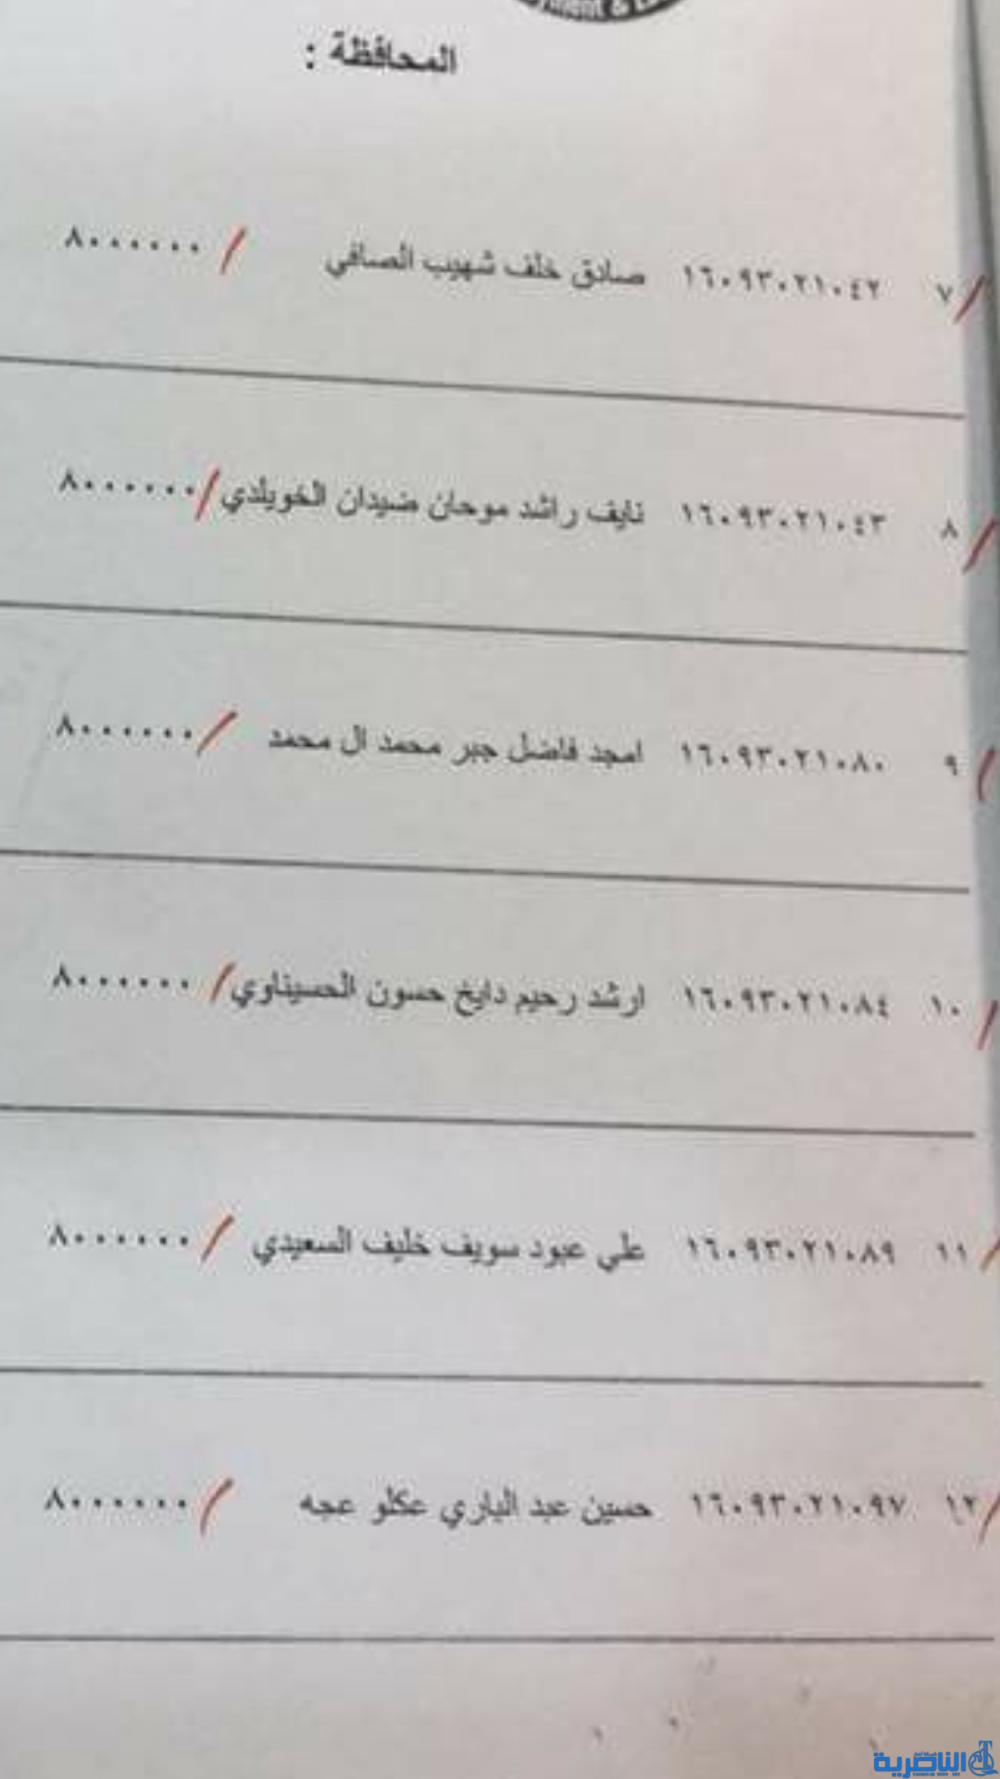 المحافظة :
٧ ١٦٠٩٣٠٢١٠٤٢ صادق خلف شهيب الصافي ٨٠٠٠٠٠٠
٨ ١٦٠٩٣٠٢١٠٤٣ نايف راشد موحان ضيدان الخويلدي ٨٠٠٠٠٠٠
٩ ١٦٠٩٣٠٢١٠٨٠ امجد فاضل جبر محمد ال محمد ٨٠٠٠٠٠٠
١٠ ١٦٠٩٣٠٢١٠٨٤ ارشد رحيم دايخ حسون الحسيناوي ٨٠٠٠٠٠٠
١١ ١٦٠٩٣٠٢١٠٨٩ علي عبود سويف خليف السعيدي ٨٠٠٠٠٠٠
١٢ ١٦٠٩٣٠٢١٠٩٧ حسين عبد الباري عكلو عجه ٨٠٠٠٠٠٠
الناصرية